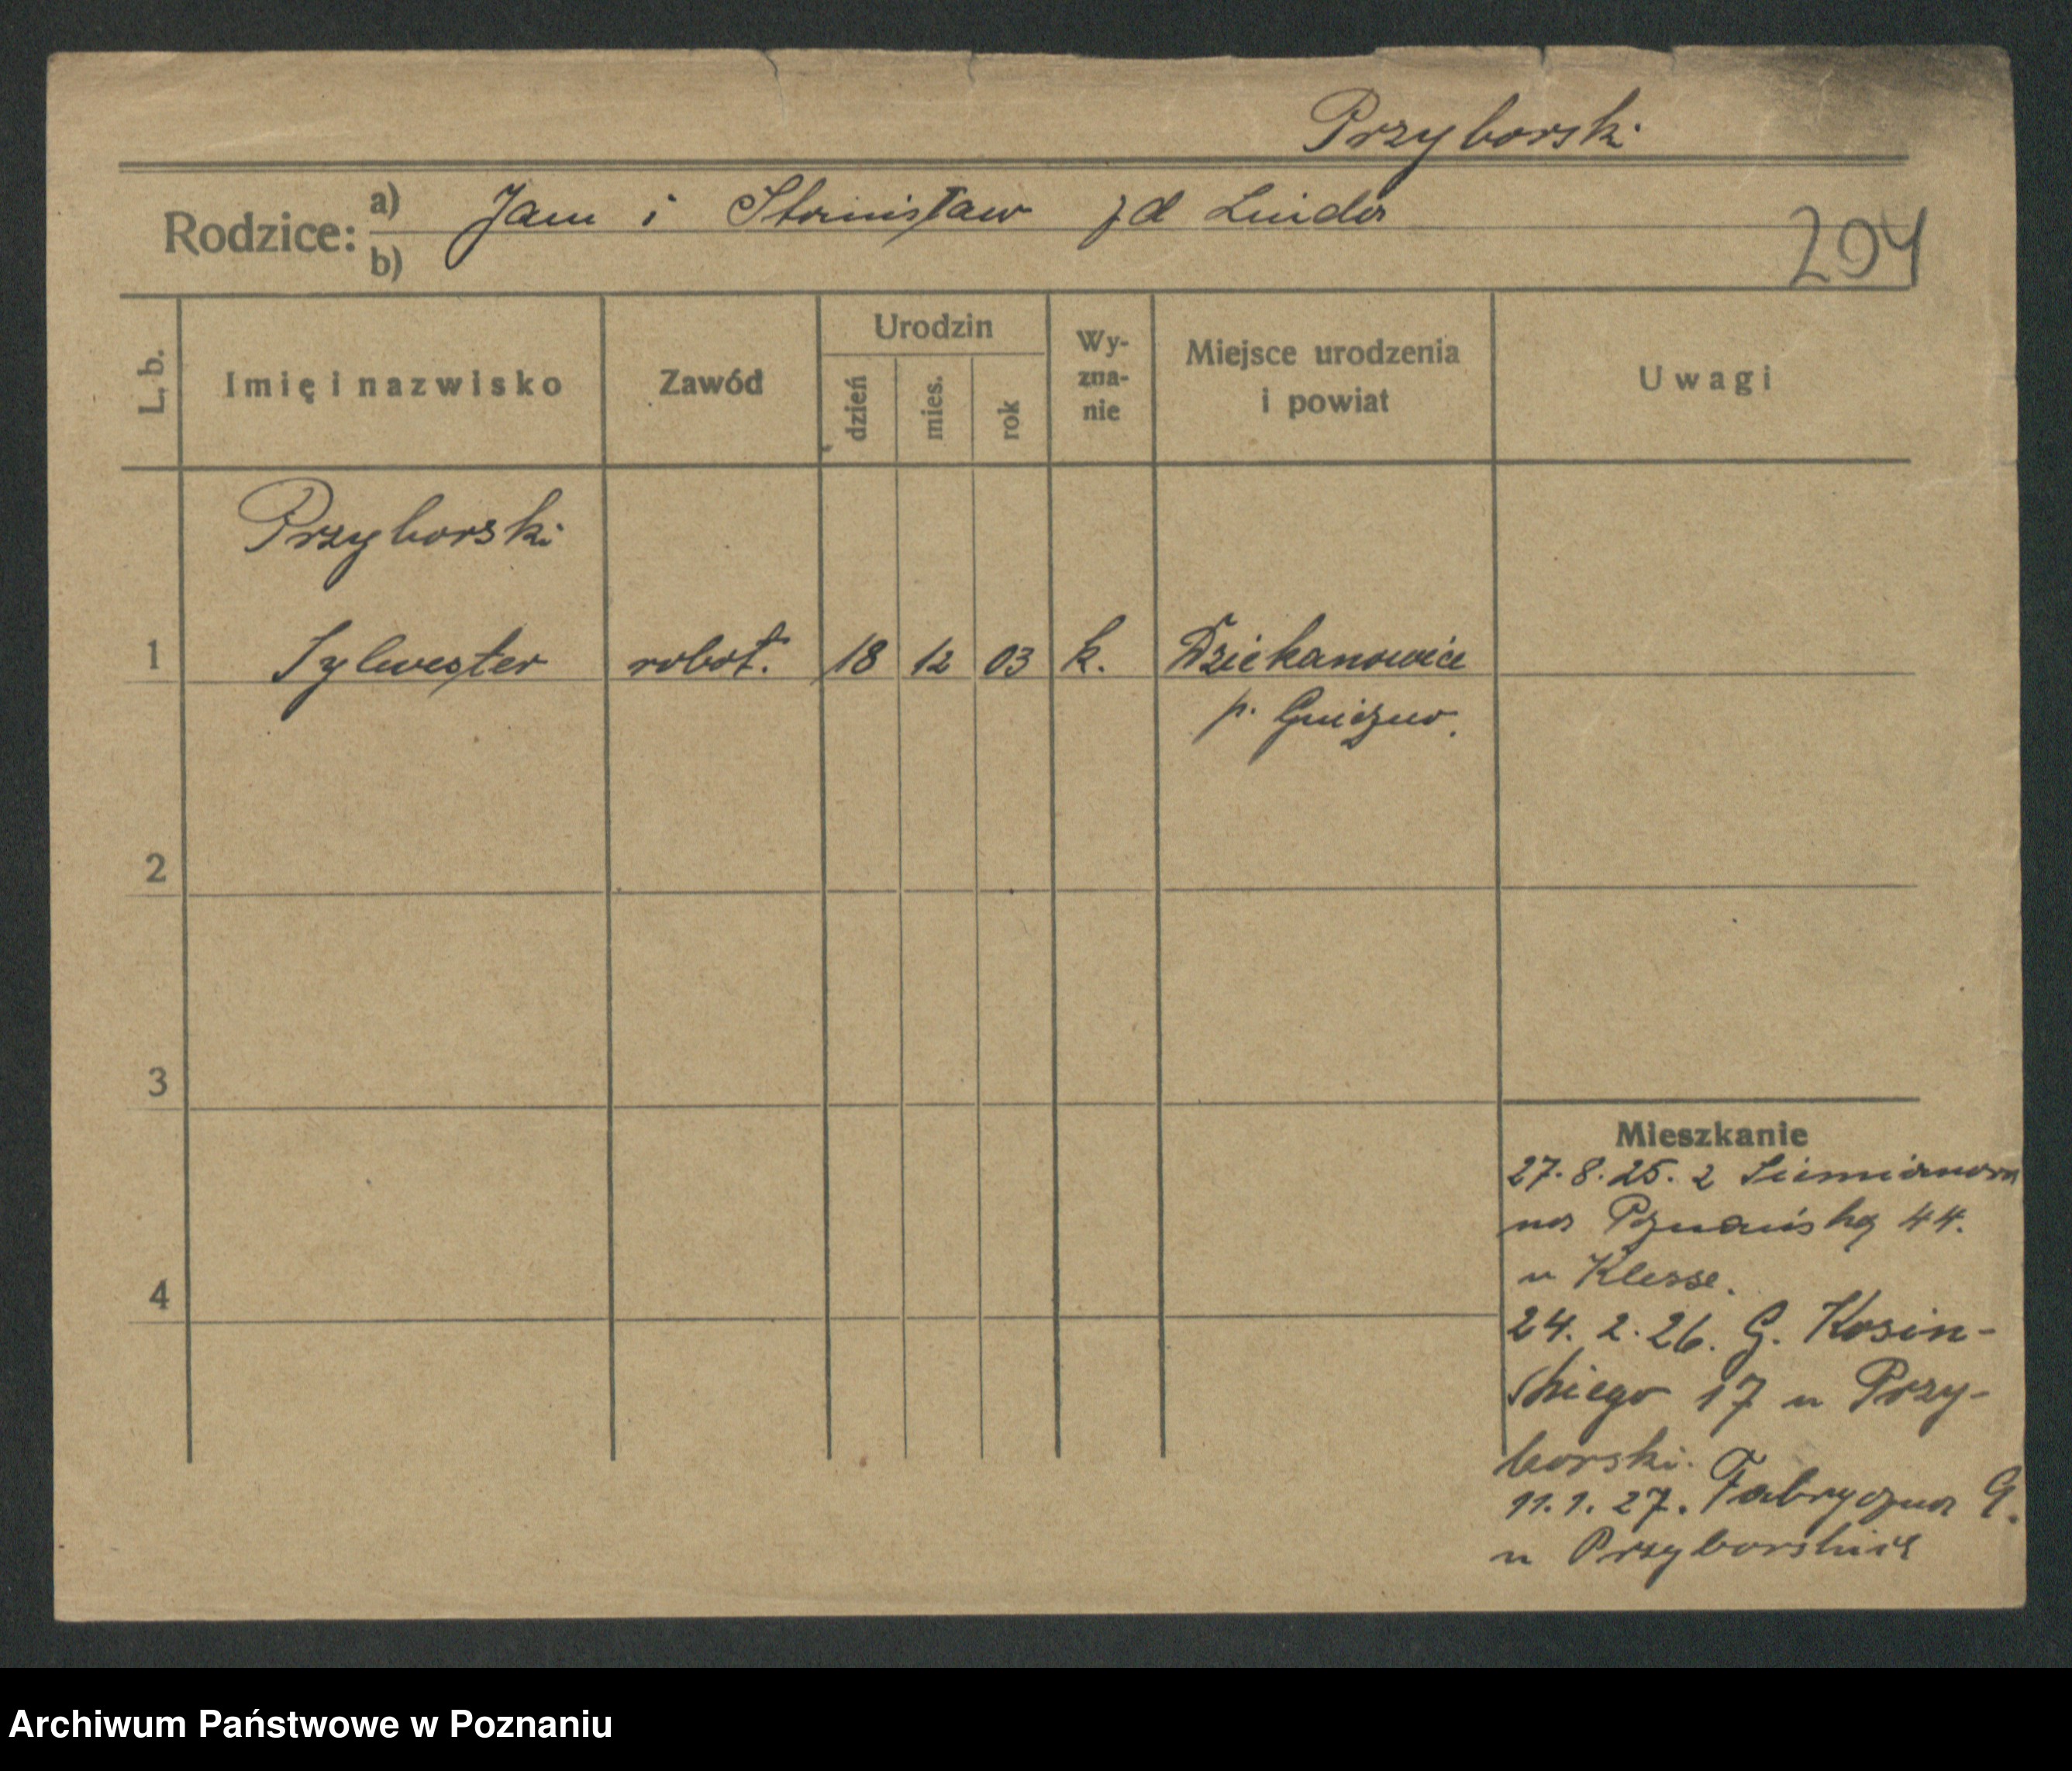 Przyborski
Rodzice: a) Jan i Stanisław zd Linda
b)
204
L. b.
Imię i nazwisko
Zawód
Urodzin
dzień
mies.
rok
Wy-
zna-
nie
Miejsce urodzenia
i powiat
Uwagi
Przyborski
1 Sylwester robot. 18 12 03 k. Dziekanowice
p. Gniezno.
2
3
4
Mieszkanie
27.8.25. z
na Poznańską 44.
u Klesse.
24. 2. 26. G. Kosin-
skiego 17 u Przy-
borski.
11.1.27. Fabryczna 9.
u Przyborskich
Archiwum Państwowe w Poznaniu